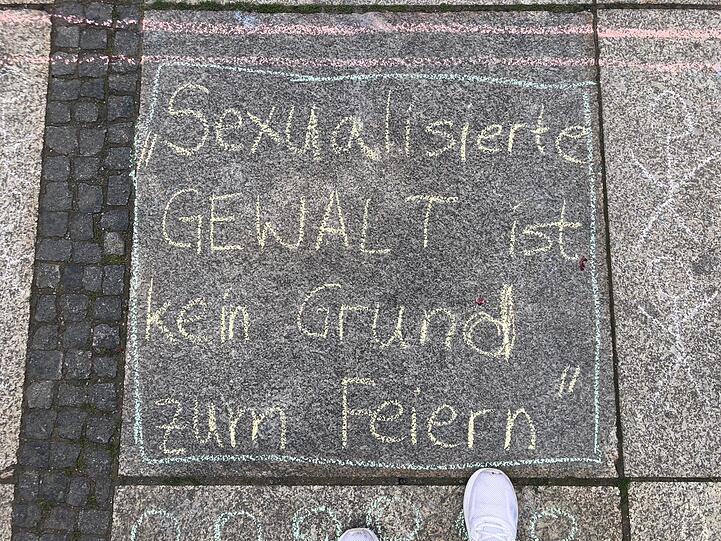 „Sexualisierte
GEWALT ist
kein Grund
zum Feiern"